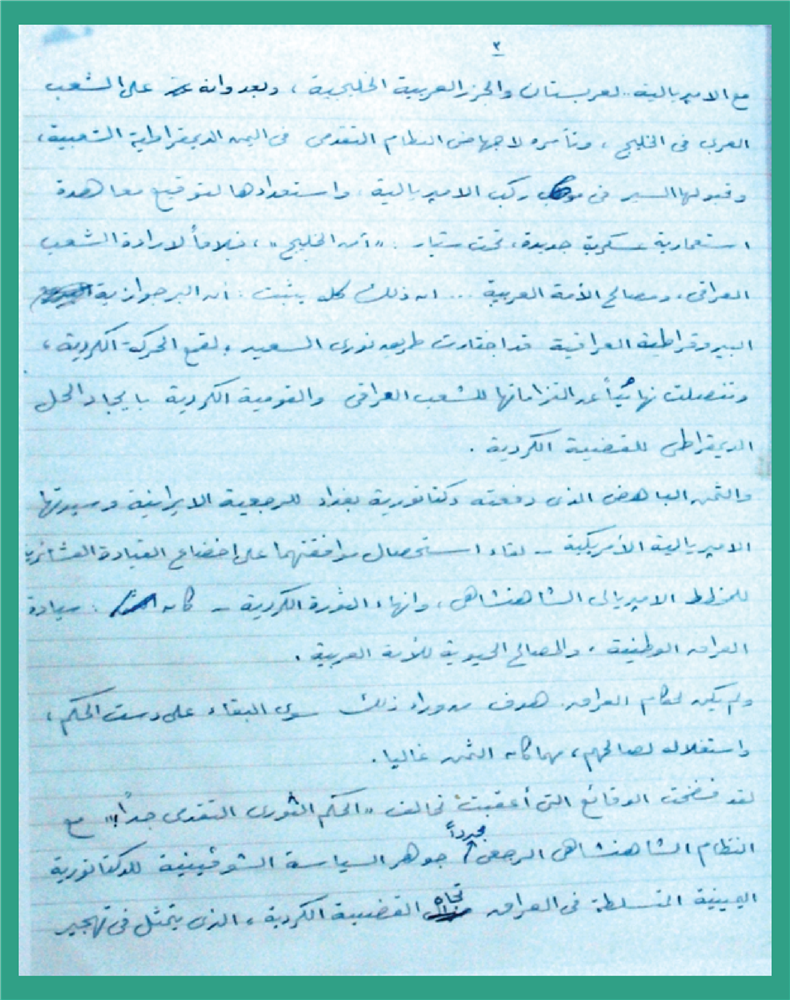 ٣
مع الامبريالية.. لعربستان والجزر العربية الخليجية، وبعدوانه على الشعب
العربي في الخليج، وتآمره لاجهاض النظام التقدمي في اليمن الديمقراطية الشعبية،
وقبولها السير في ركب الامبريالية، واستعدادها لتوقيع معاهدة
استعمارية عسكرية جديدة، تحت ستار: «أمن الخليج»، خلافاً لارادة الشعب
العراقي، ومصالح الأمة العربية ... ان ذلك كله يثبت: أن البرجوازية
البيروقراطية العراقية قد اختارت طريق نوري السعيد، لقمع الحركة الكردية،
وتنصلت نهائياً عن التزاماتها للشعب العراقي والقومية الكردية بايجاد الحل
الديمقراطي للقضية الكردية.
والثمن الباهض الذي دفعته دكتاتورية بغداد للرجعية الايرانية وسيدتها
الامبريالية الأمريكية – لقاء استحصال موافقتهما على اخضاع القيادة العشائرية
للمخطط الامبريالي الشاهنشاهي، وانهاء الثورة الكردية – كان: سيادة
العراق الوطنية، والمصالح الحيوية للأمة العربية.
ولم يكن لحكام العراق هدف من وراء ذلك سوى البقاء على دست الحكم،
واستغلاله لصالحهم، مهما كان الثمن غاليا.
لقد فضحت الوقائع التي أعقبت تحالف «الحكم الثوري التقدمي جداً!» مع
النظام الشاهنشاهي الرجعي مجدداً جوهر السياسة الشوفينية للدكتاتورية
اليمينية المتسلطة في العراق تجاه القضية الكردية، الذي يتمثل في تهجير